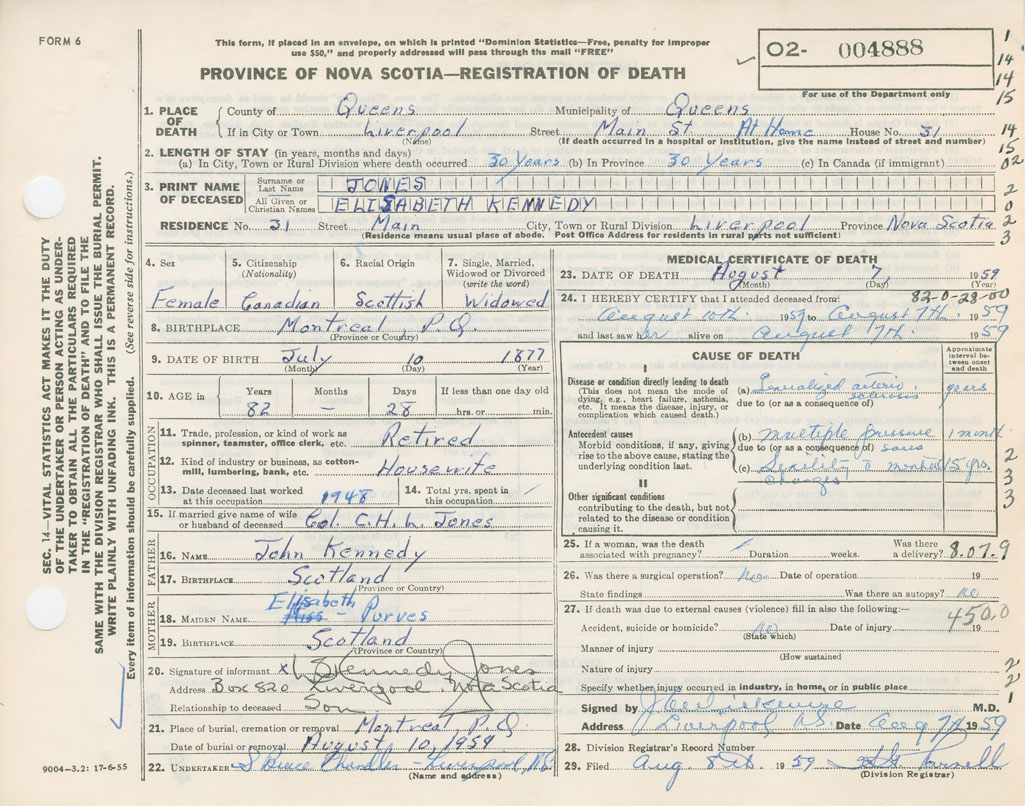 FORM 6
This form, if placed in an envelope, on which is printed "Dominion Statistics—Free, penalty for improper
use $50," and properly addressed will pass through the mail "FREE"
PROVINCE OF NOVA SCOTIA—REGISTRATION OF DEATH
O2- 004888
For use of the Department only
1
14
14
15
14
15
02
2
0
2
3
SEC. 14—VITAL STATISTICS ACT MAKES IT THE DUTY
OF THE UNDERTAKER OR PERSON ACTING AS UNDER-
TAKER TO OBTAIN ALL THE PARTICULARS REQUIRED
IN THE "REGISTRATION OF DEATH" AND TO FILE THE
SAME WITH THE DIVISION REGISTRAR WHO SHALL ISSUE THE BURIAL PERMIT.
WRITE PLAINLY WITH UNFADING INK. THIS IS A PERMANENT RECORD.
Every item of information should be carefully supplied. (See reverse side for instructions.)
1. PLACE OF DEATH
County of Queens Municipality of Queens
If in City or Town Liverpool Street Main St. At Home House No. 31
(Name) (If death occurred in a hospital or institution, give the name instead of street and number)
2. LENGTH OF STAY (in years, months and days)
(a) In City, Town or Rural Division where death occurred 30 Years (b) In Province 30 Years (c) In Canada (if immigrant)
3. PRINT NAME OF DECEASED
Surname or Last Name JONES
All Given or Christian Names ELISABETH KENNEDY
RESIDENCE No. 31 Street Main City, Town or Rural Division Liverpool Province Nova Scotia
(Residence means usual place of abode. Post Office Address for residents in rural parts not sufficient)
4. Sex Female
5. Citizenship (Nationality) Canadian
6. Racial Origin Scottish
7. Single, Married, Widowed or Divorced (write the word) Widowed
8. BIRTHPLACE Montreal, P.Q.
(Province or Country)
9. DATE OF BIRTH July 10 1877
(Month) (Day) (Year)
10. AGE in Years 82 Months — Days 28 If less than one day old hrs. or min.
OCCUPATION
11. Trade, profession, or kind of work as spinner, teamster, office clerk, etc. Retired
12. Kind of industry or business, as cotton-mill, lumbering, bank, etc. Housewife
13. Date deceased last worked at this occupation 1948
14. Total yrs. spent in this occupation
15. If married give name of wife or husband of deceased Col. C.H.L. Jones
FATHER
16. NAME John Kennedy
17. BIRTHPLACE Scotland
(Province or Country)
MOTHER
18. MAIDEN NAME Elisabeth Miss Purves
19. BIRTHPLACE Scotland
(Province or Country)
20. Signature of informant x Kennedy Jones
Address Box 820 Liverpool Nova Scotia
Relationship to deceased Son
21. Place of burial, cremation or removal Montreal P.Q.
Date of burial or removal August, 10, 1959
22. UNDERTAKER Bruce Chandler - Liverpool, N.S.
(Name and address)
9004—3.2: 17-6-55
MEDICAL CERTIFICATE OF DEATH
23. DATE OF DEATH August 7, 1959
(Month) (Day) (Year)
82-0-28-00
24. I HEREBY CERTIFY that I attended deceased from:
August 10th. 1957 to August 7th. 1959
and last saw her alive on August 7th. 1959
CAUSE OF DEATH
Approximate interval between onset and death
I
Disease or condition directly leading to death
(This does not mean the mode of dying, e.g., heart failure, asthenia, etc. It means the disease, injury, or complication which caused death.)
(a) Generalized arterio sclerosis years
due to (or as a consequence of)
Antecedent causes
Morbid conditions, if any, giving rise to the above cause, stating the underlying condition last.
(b) multiple pressure sores 1 month
due to (or as a consequence of)
(c) Senility c mental changes 15 yrs.
II
Other significant conditions
contributing to the death, but not related to the disease or condition causing it.
2
3
3
3
25. If a woman, was the death associated with pregnancy? Duration weeks. Was there a delivery?
8.07.9
26. Was there a surgical operation? Date of operation 19
State findings Was there an autopsy? No
27. If death was due to external causes (violence) fill in also the following:—
450.0
Accident, suicide or homicide? No Date of injury 19
(State which)
Manner of injury
(How sustained
Nature of injury
Specify whether injury occurred in industry, in home, or in public place
2
2
1
Signed by M.D.
Address Liverpool, N.S. Date Aug 7th 1959
28. Division Registrar's Record Number
29. Filed Aug. 8th. 1959
(Division Registrar)